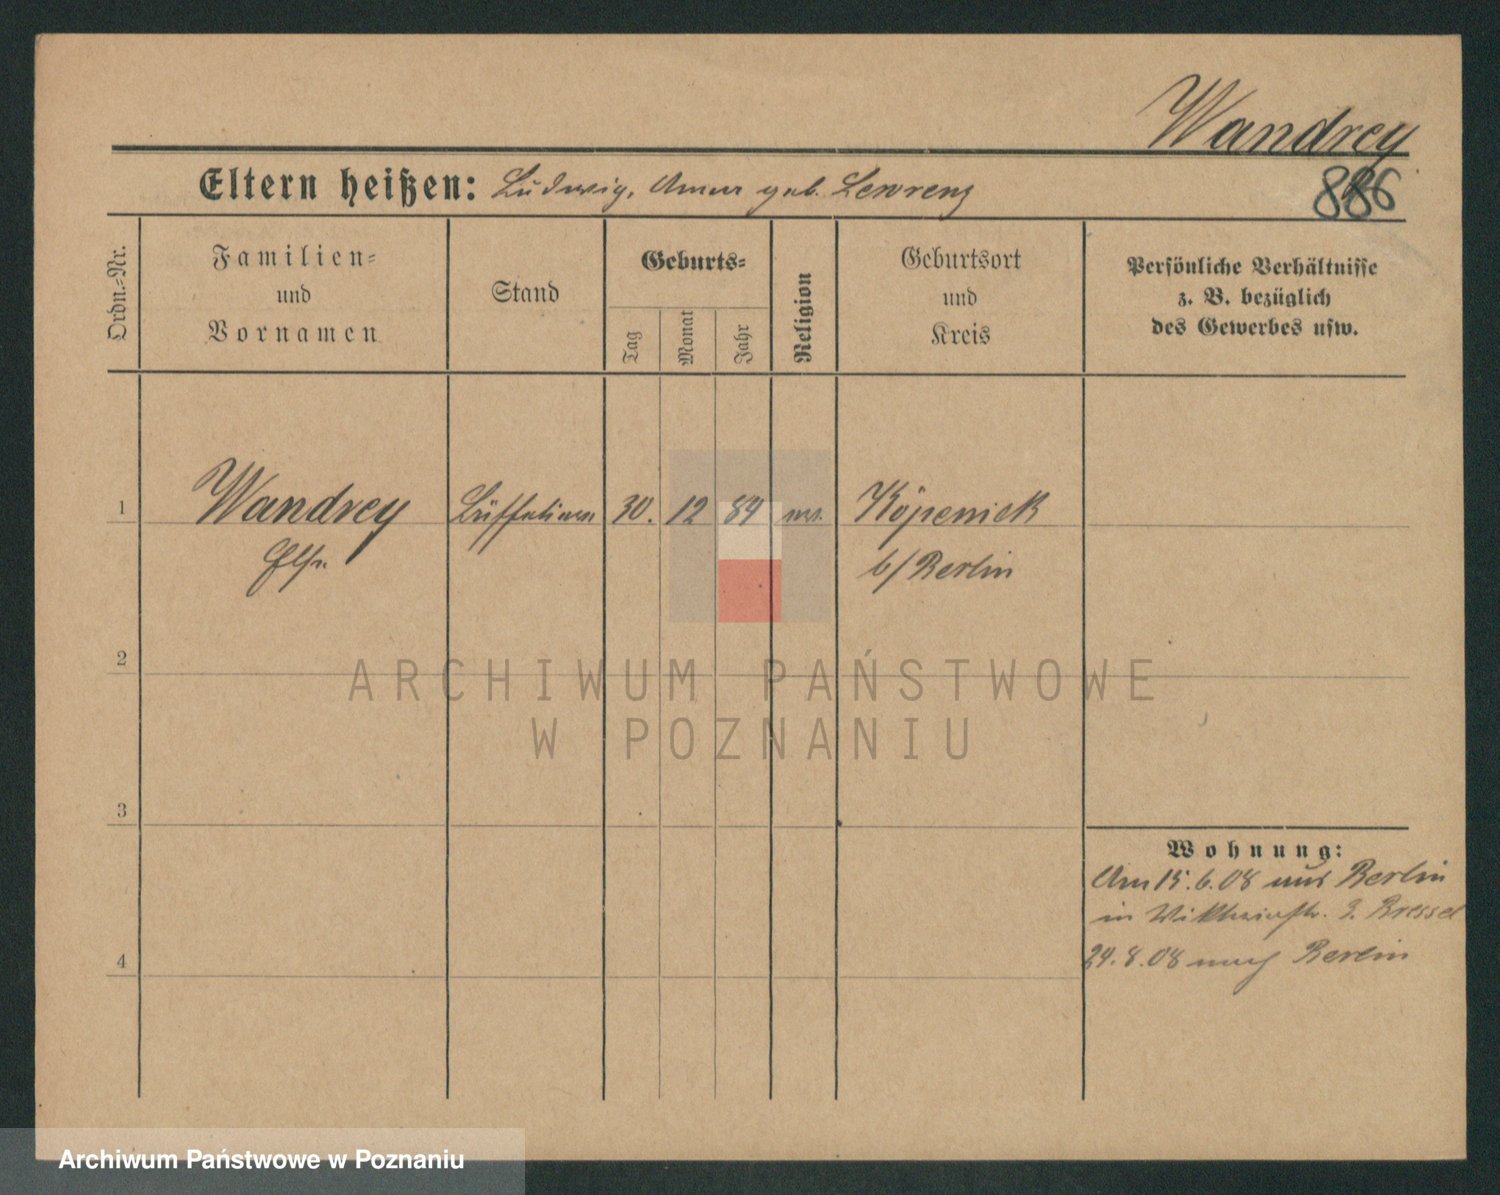 Wandrey
Eltern heißen: Ludwig, Anna geb. Lewrenz
886
Ordn.-Nr.
Familien-
und
Vornamen
Stand
Geburts-
Tag
Monat
Jahr
Religion
Geburtsort
und
Kreis
Persönliche Verhältnisse
z. B. bezüglich
des Gewerbes usw.
1 Wandrey 30. 12 84 Köpenick
b/Berlin
2
ARCHIWUM PAŃSTWOWE
W POZNANIU
3
Wohnung:
Am 15.6.08 aus Berlin
in
4
24.8.08 nach Berlin
Archiwum Państwowe w Poznaniu